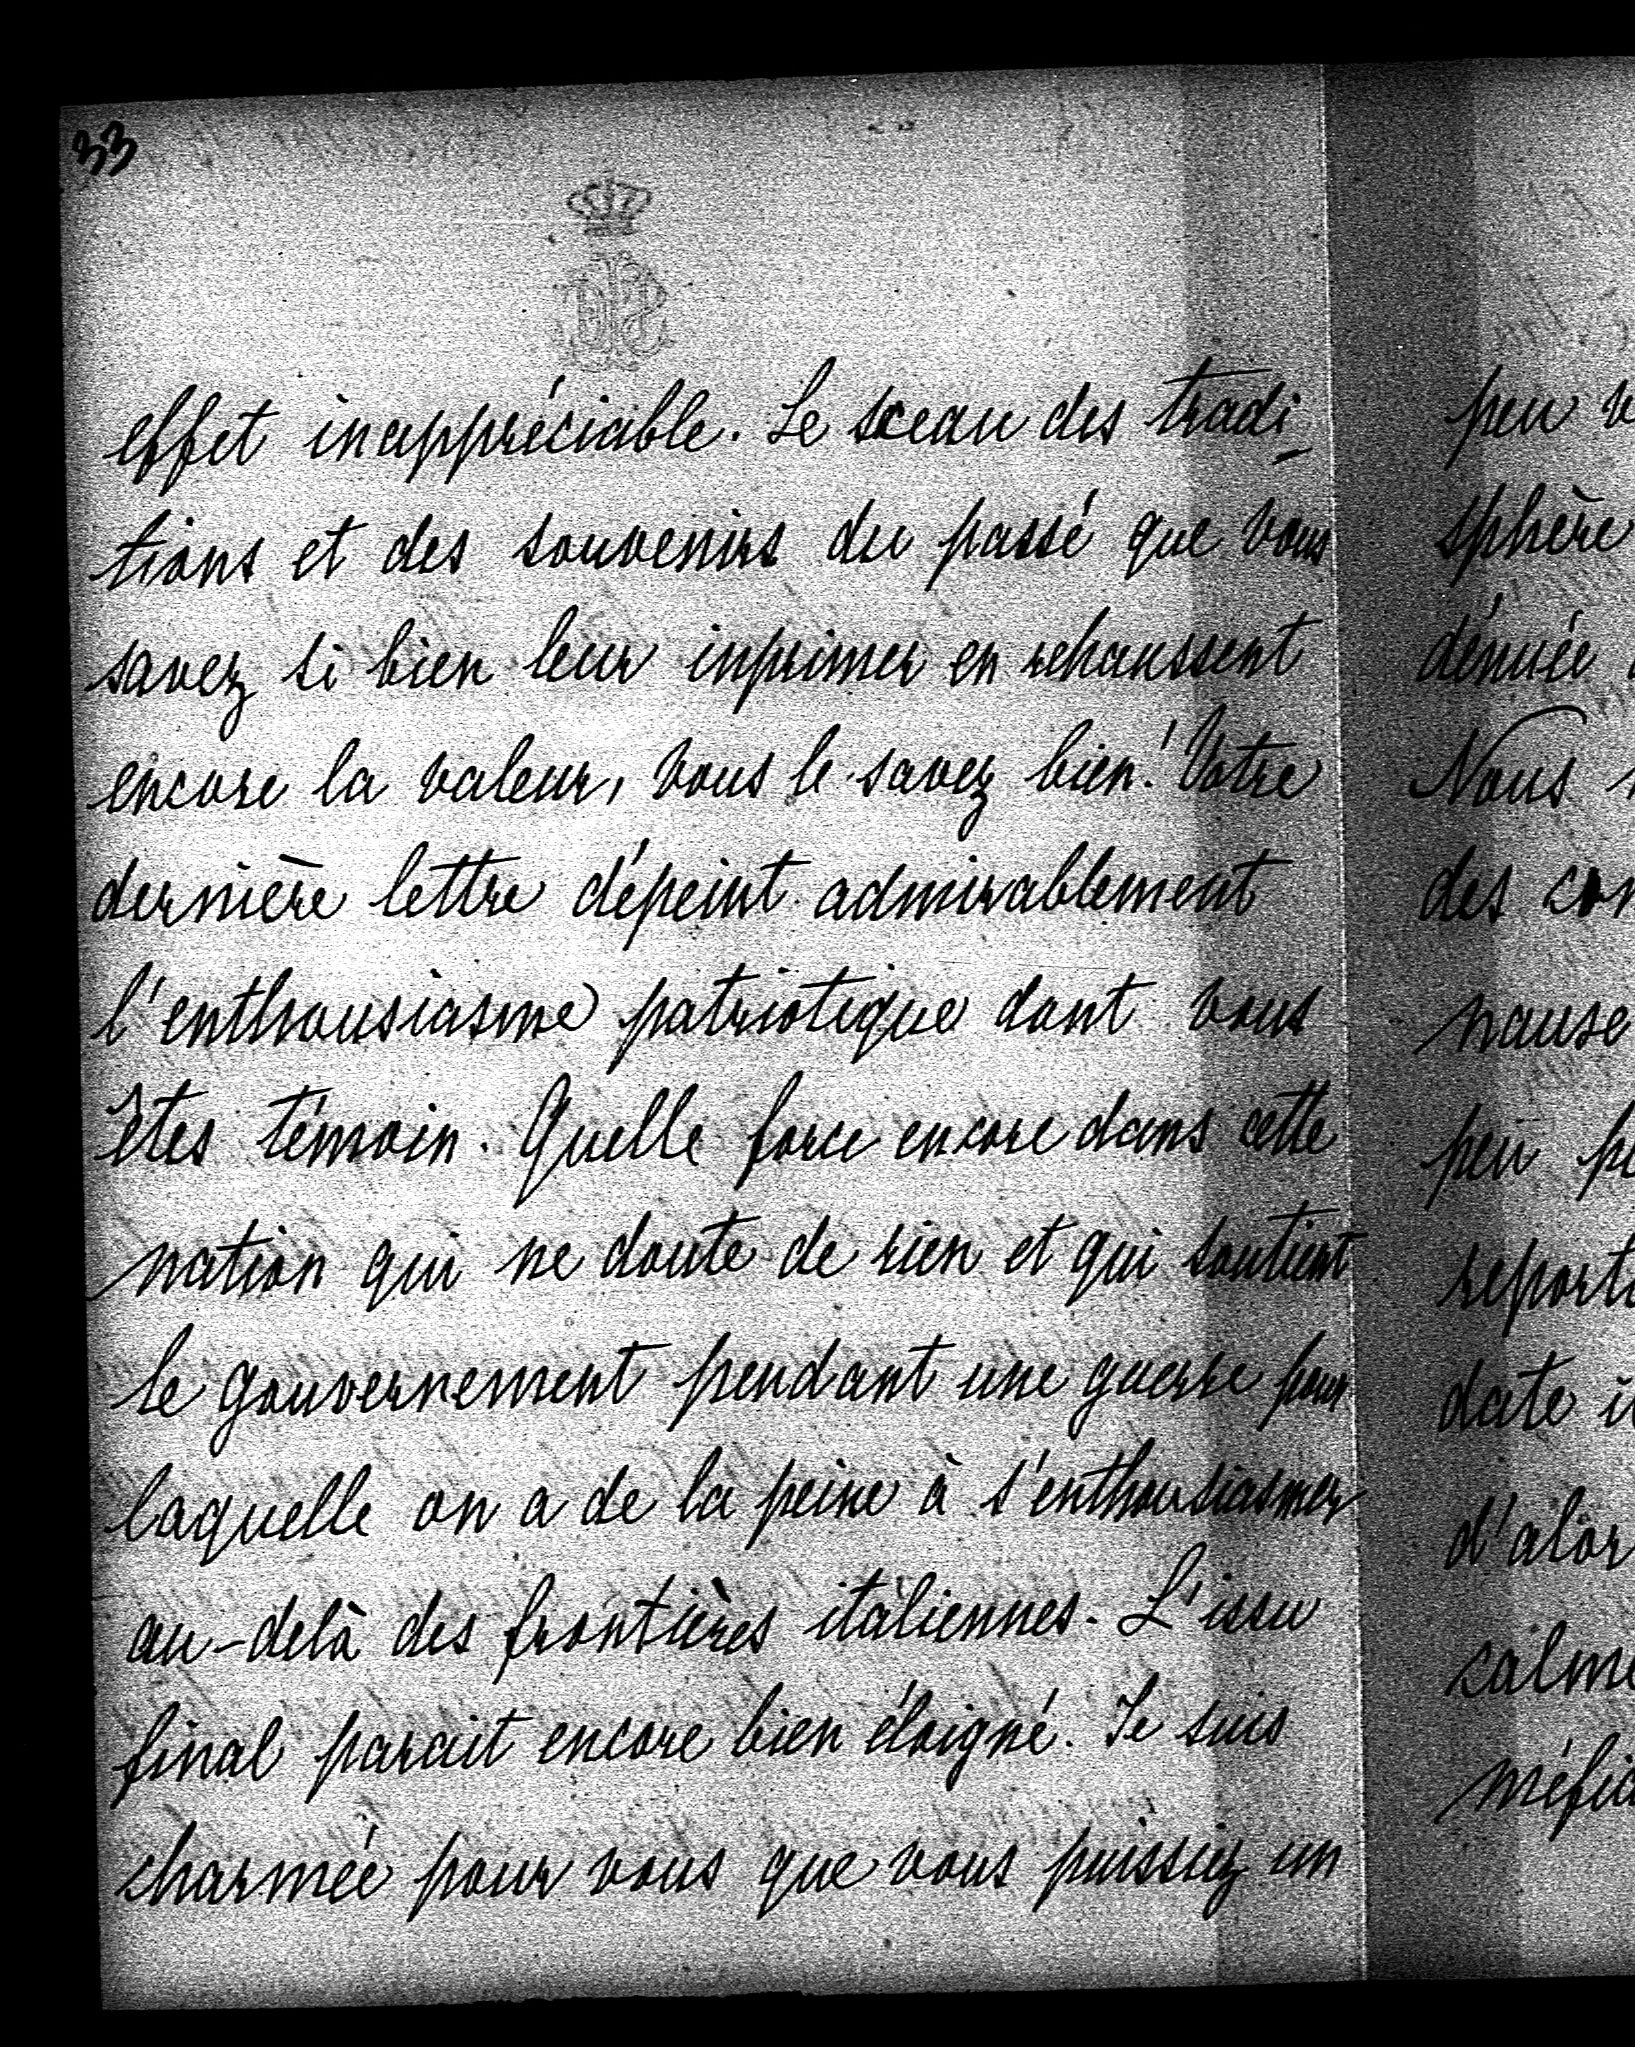 33
effet inappréciable. Le sceau des tradi-
tions et des souvenirs du passé que vous
savez si bien leur inprimer en rehaussent
encore la valeur, vous le savez bien! Votre
dernière lettre dépeint admirablement
l'enthousiasme patriotique dont vous
êtes témoin. Quelle force encore dans cette
nation qui ne doute de rien et qui soutient
le gouvernement pendant une guerre pour
laquelle on a de la peine à s'enthousiasmer
au-delà des frontières italiennes. L'issu
final parait encore bien éloigné. Je suis
charmée pour vous que vous puissiez un
peu
sphère
dénuée
Nous
des
peu
date